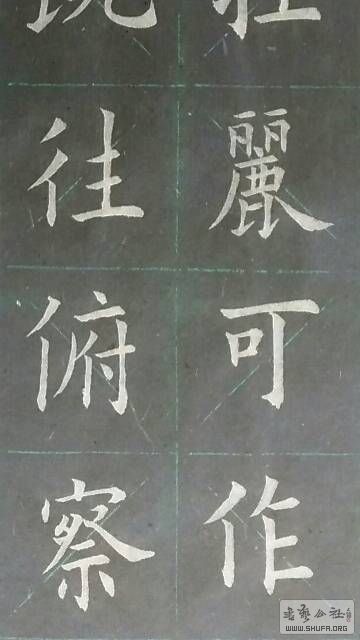 麗可作
往俯察
书艺公社
WWW.SHUFA.ORG